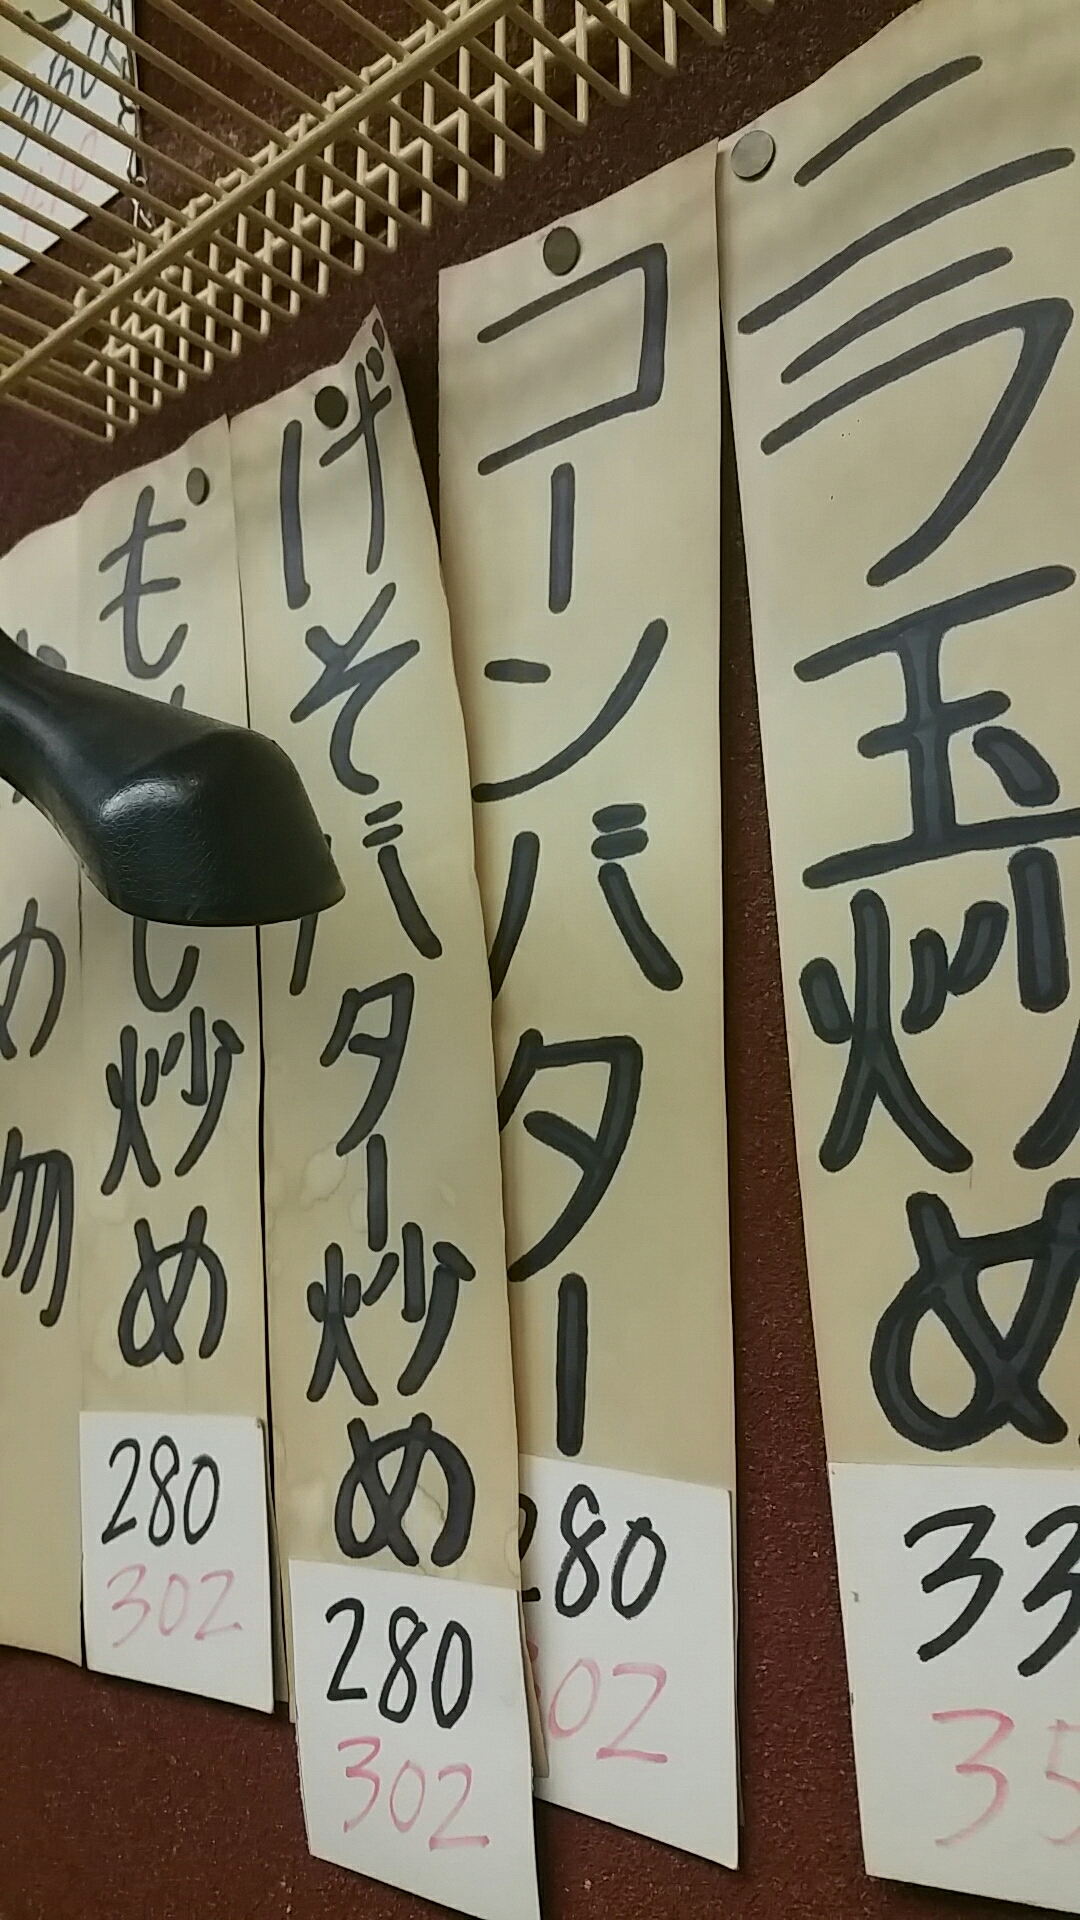 ニラ玉炒め
33
35
コーンバター
280
302
げそバター炒め
280
302
もやし炒め
280
302